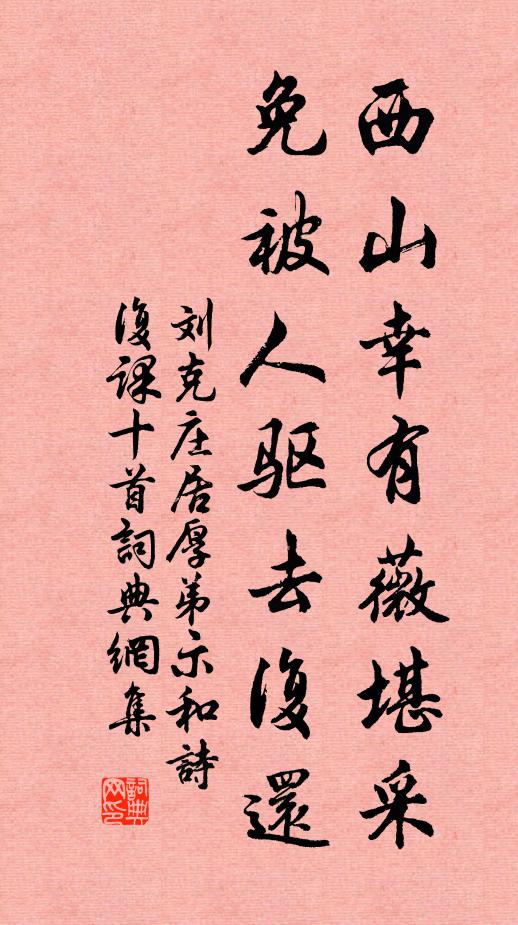 西山幸有薇堪采
免被人驱去復還
刘克庄居厚弟示和詩
復課十首詞典網集
詞典网印